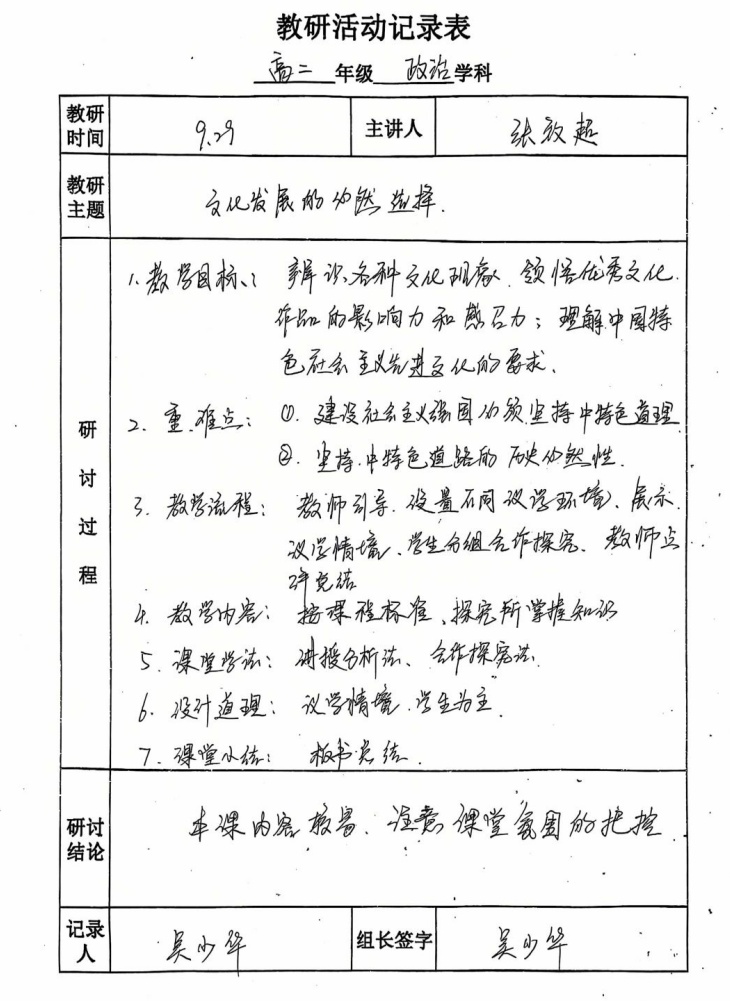 教研活动记录表
高二 年级 政治学科
教研时间 9.29 主讲人 张效超
教研主题 文化发展的必然选择.
研讨过程
1.教学目标: 辨识各种文化现象、领悟优秀文化
作品的影响力和感召力；理解中国特
色社会主义先进文化的要求.
2. 重、难点: ①. 建设社会主义强国必须坚持中特色道理
②. 坚持中特色道路的历史必然性.
3. 教学流程: 教师引导、设置不同议学环境、展示
议学情境、学生分组合作探究、教师点
评总结
4. 教学内容: 按课程标准、探究所掌握知识
5. 课堂学法: 讲授分析法、合作探究法.
6. 设计道理: 议学情境、学生为主.
7. 课堂小结: 板书总结.
研讨结论 本课内容较易、注意课堂氛围的把控
记录人 吴少华 组长签字 吴少华